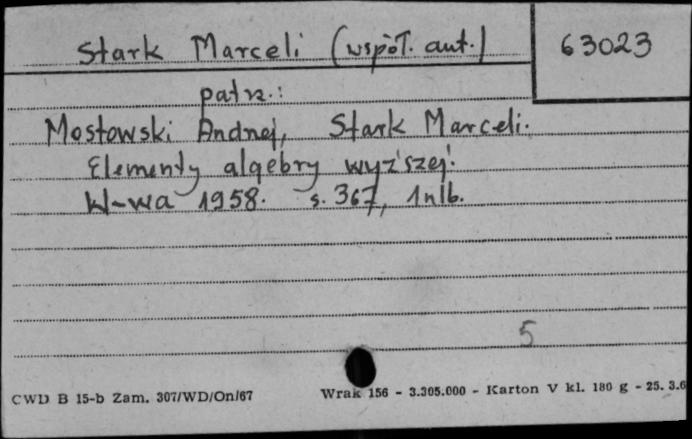 Stark Marceli (współ. aut.) 63023
patrz.:
Mostowski Andrzej, Stark Marceli.
Elementy algebry wyższej.
W-wa 1958. s. 367, 1 nlb.
5
CWD B 15-b Zam. 307/WD/On/67 Wrak 156 - 3.305.000 - Karton V kl. 180 g - 25. 3.6